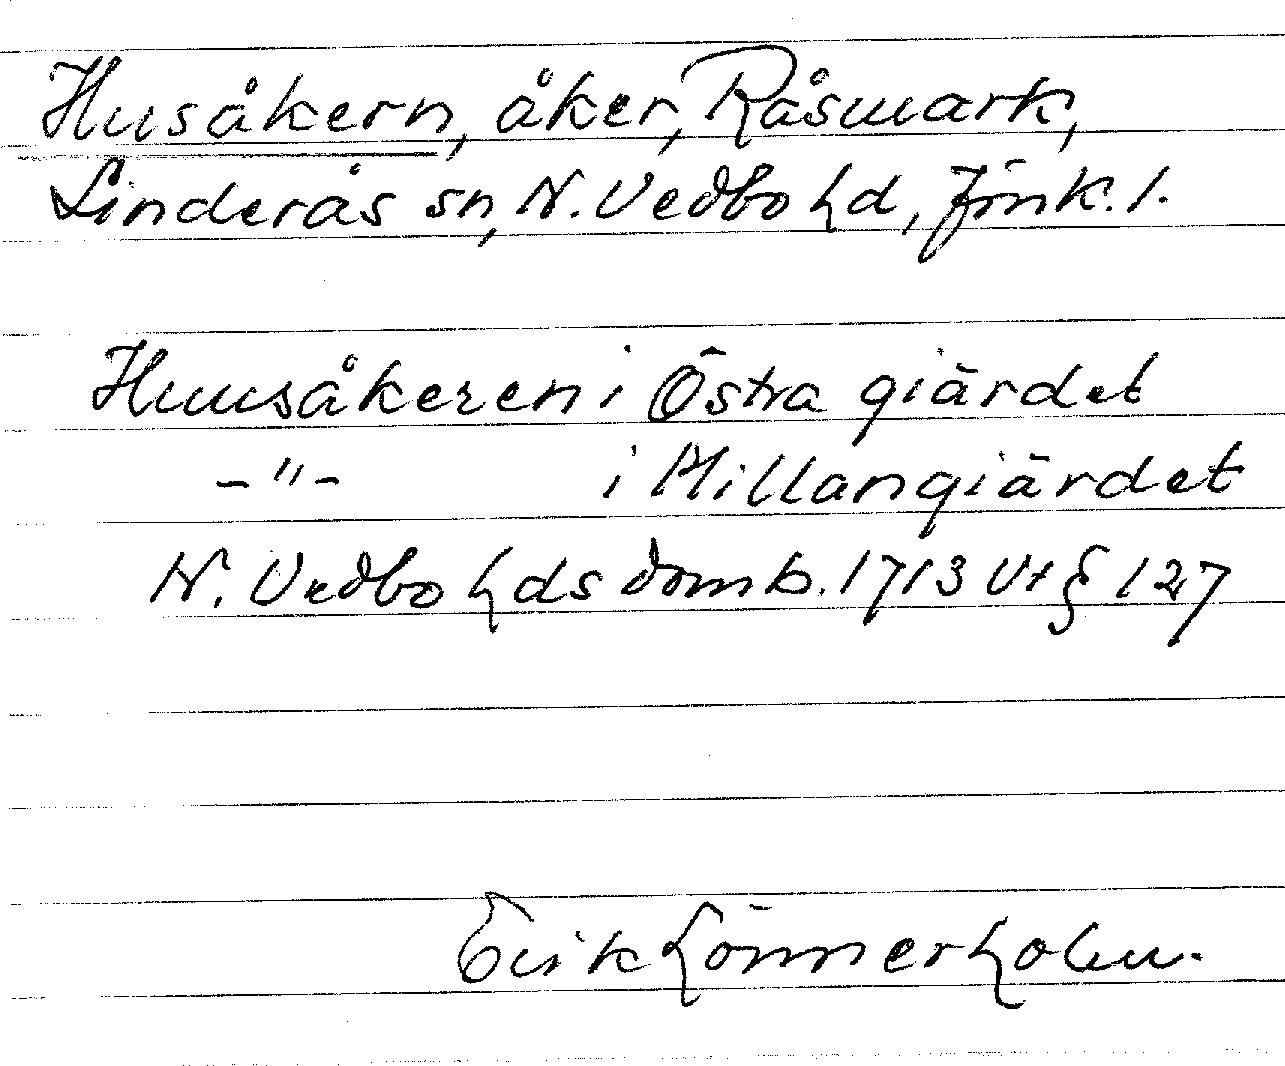 Husåkern, åker, Råsmark,
Linderås sn, N. Vedbo hd, Jönk. l.
Huusåkeren i Östra giärdet
-"- i Millangiärdet
N. Vedbo hds domb. 1713 Vt § 127
Erik Lönnerholm.